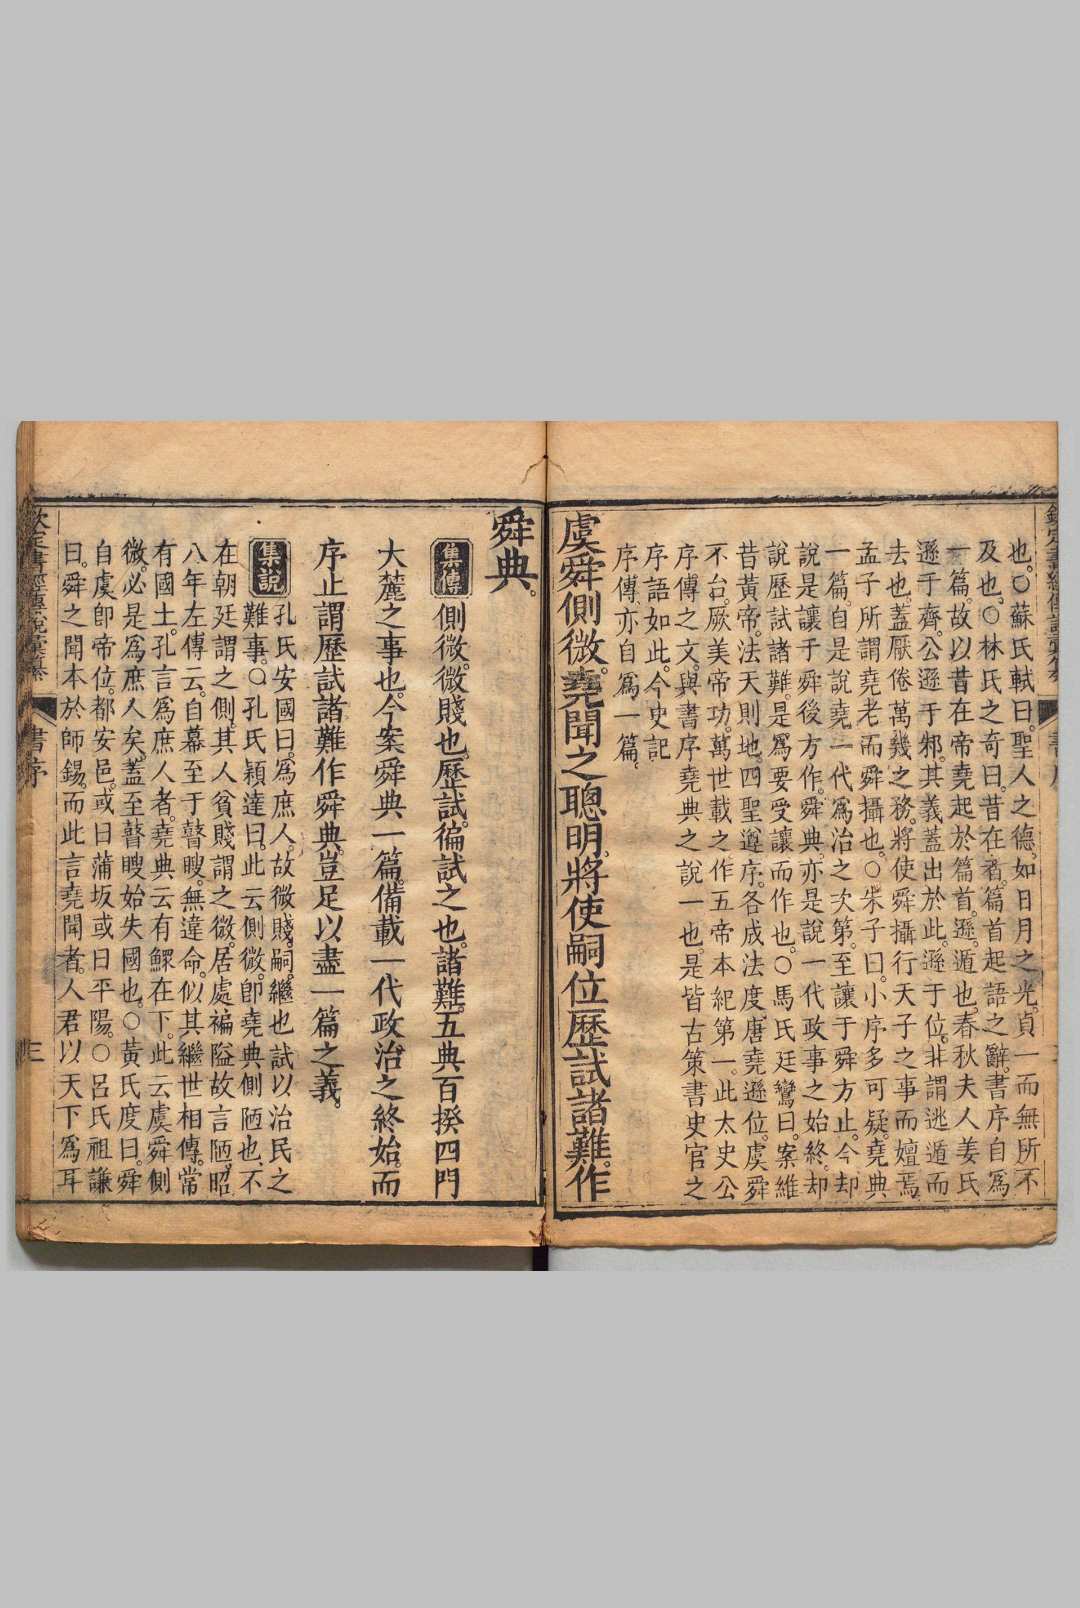 也。○蘇氏軾曰。聖人之德。如日月之光。貞一而無所不
及也。○林氏之奇曰。昔在者。篇首起語之辭。書序自為
一篇。故以昔在帝堯起於篇首。遜。遁也。春秋夫人姜氏
遜于齊。公遜于邾。其義蓋出於此。遜于位。非謂逃遁而
去也。蓋厭倦萬幾之務。將使舜攝行天子之事而嬗焉。
孟子所謂堯老而舜攝也。○朱子曰。小序多可疑。堯典
一篇。自是說堯一代為治之次第。至讓于舜方止。今却
說是讓于舜後方作。舜典亦是說一代政事之始終。却
說歷試諸難。是為要受讓而作也。○馬氏廷鸞曰。案維
昔黃帝。法天則地。四聖遵序。各成法度。唐堯遜位。虞舜
不台。厥美帝功。萬世載之作五帝本紀第一。此太史公
序傳之文。與書序堯典之說一也。是皆古策書史官之
序語如此。今史記
序傳亦自為一篇。
虞舜側微。堯聞之聰明。將使嗣位歷試諸難。作
舜典。
集傳 側微。微賤也。歷試。徧試之也。諸難。五典百揆四門
大麓之事也。今案舜典一篇。備載一代政治之終始。而
序止謂歷試諸難作舜典。豈足以盡一篇之義。
集說 孔氏安國曰。為庶人。故微賤。嗣。繼也試以治民之
難事。○孔氏穎達曰。此云側微。卽堯典側陋也。不
在朝廷謂之側。其人貧賤謂之微。居處褊隘故言陋。昭
八年左傳云。自幕至于瞽瞍。無違命。似其繼世相傳。常
有國土。孔言為庶人者。堯典云有鰥在下。此云虞舜側
微。必是為庶人矣。蓋至瞽瞍始失國也。○黃氏度曰。舜
自虞卽帝位。都安邑。或曰蒲坂或曰平陽。○呂氏祖謙
曰。舜之聞本於師錫。而此言堯聞者。人君以天下為耳
欽定書經傳說彙纂
書序
三